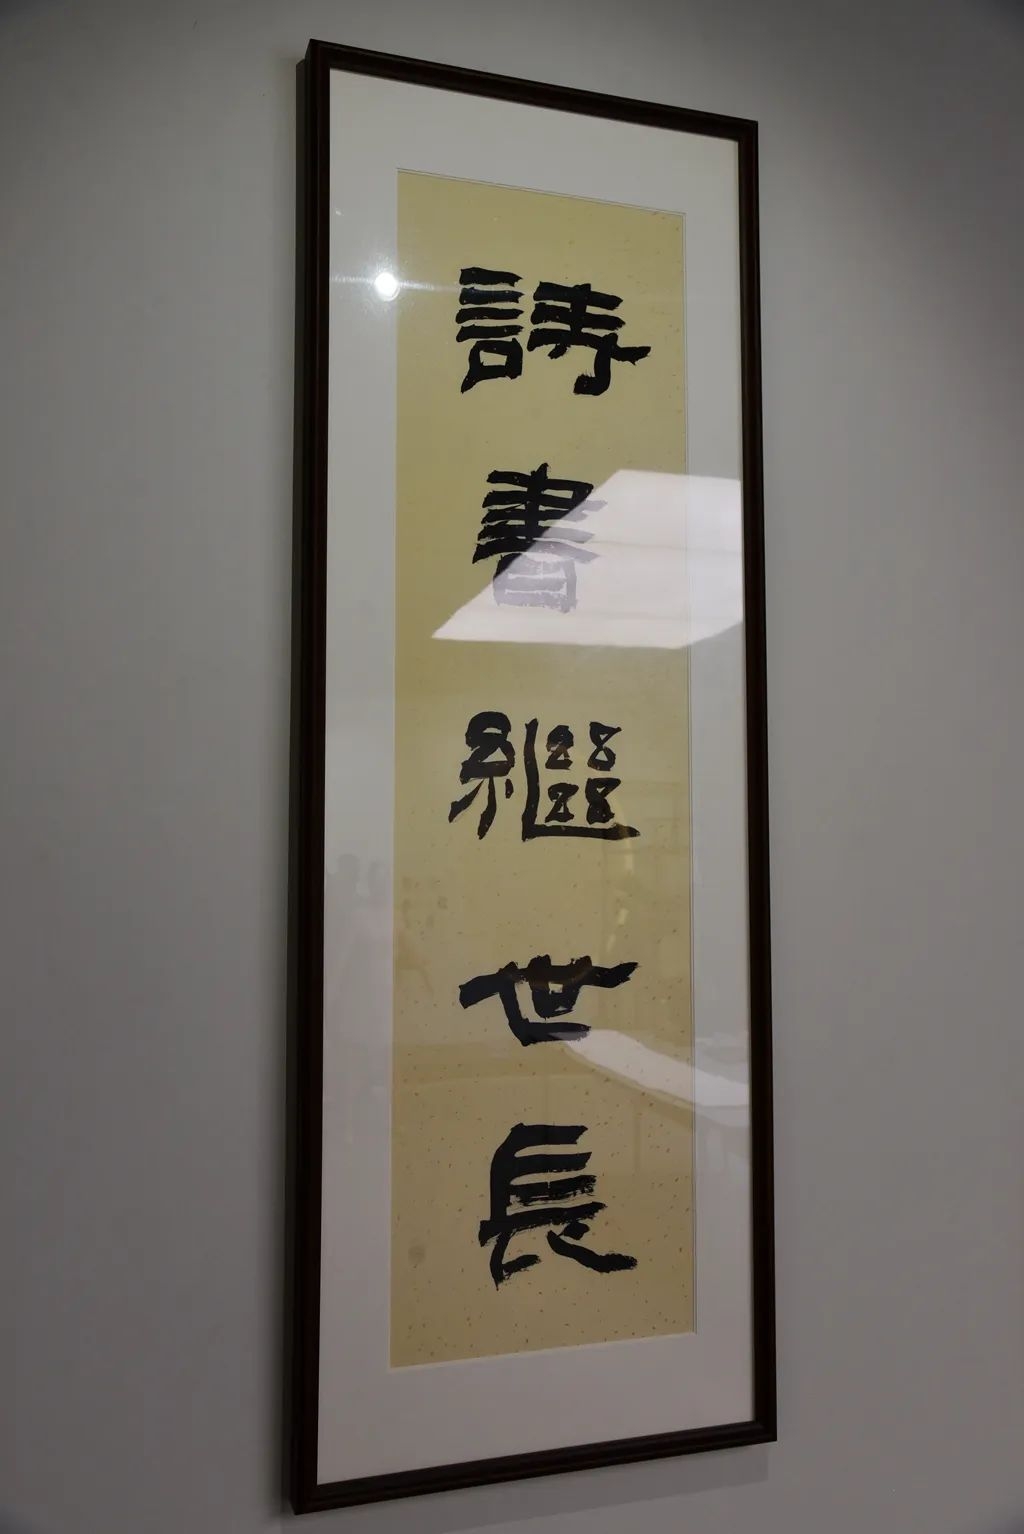 詩書繼世長